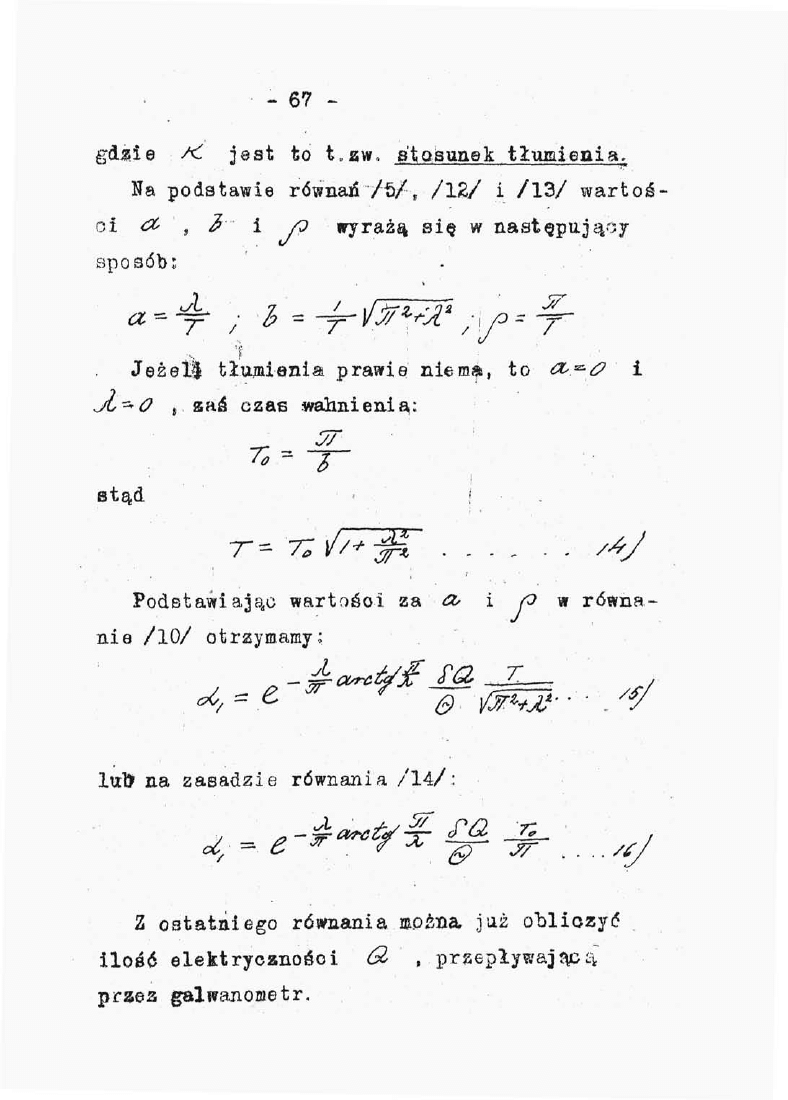 - 67 -
gdzie K jest to t.zw. stosunek tłumienia.
Na podstawie równań /5/, /12/ i /13/ wartoś-
ci a , b i ρ wyrażą się w następujący
sposób:
a = λ/T ; b = 1/T √(π²+λ²) ; ρ = π/T
Jeżeli tłumienia prawie niema, to a=0 i
λ=0 , zaś czas wahnienia:
T₀ = π/b
stąd
T = T₀ √(1+ λ²/π²) . . . . . . 14)
Podstawiając wartości za a i ρ w równa-
nie /10/ otrzymamy:
α₁ = e^(-λ/π arctg π/λ) δQ/Θ T/√(π²+λ²) . . . . 15)
lub na zasadzie równania /14/:
α₁ = e^(-λ/π arctg π/λ) δQ/Θ T₀/π . . . . 16)
Z ostatniego równania można już obliczyć
ilość elektryczności Q , przepływającą
przez galwanometr.